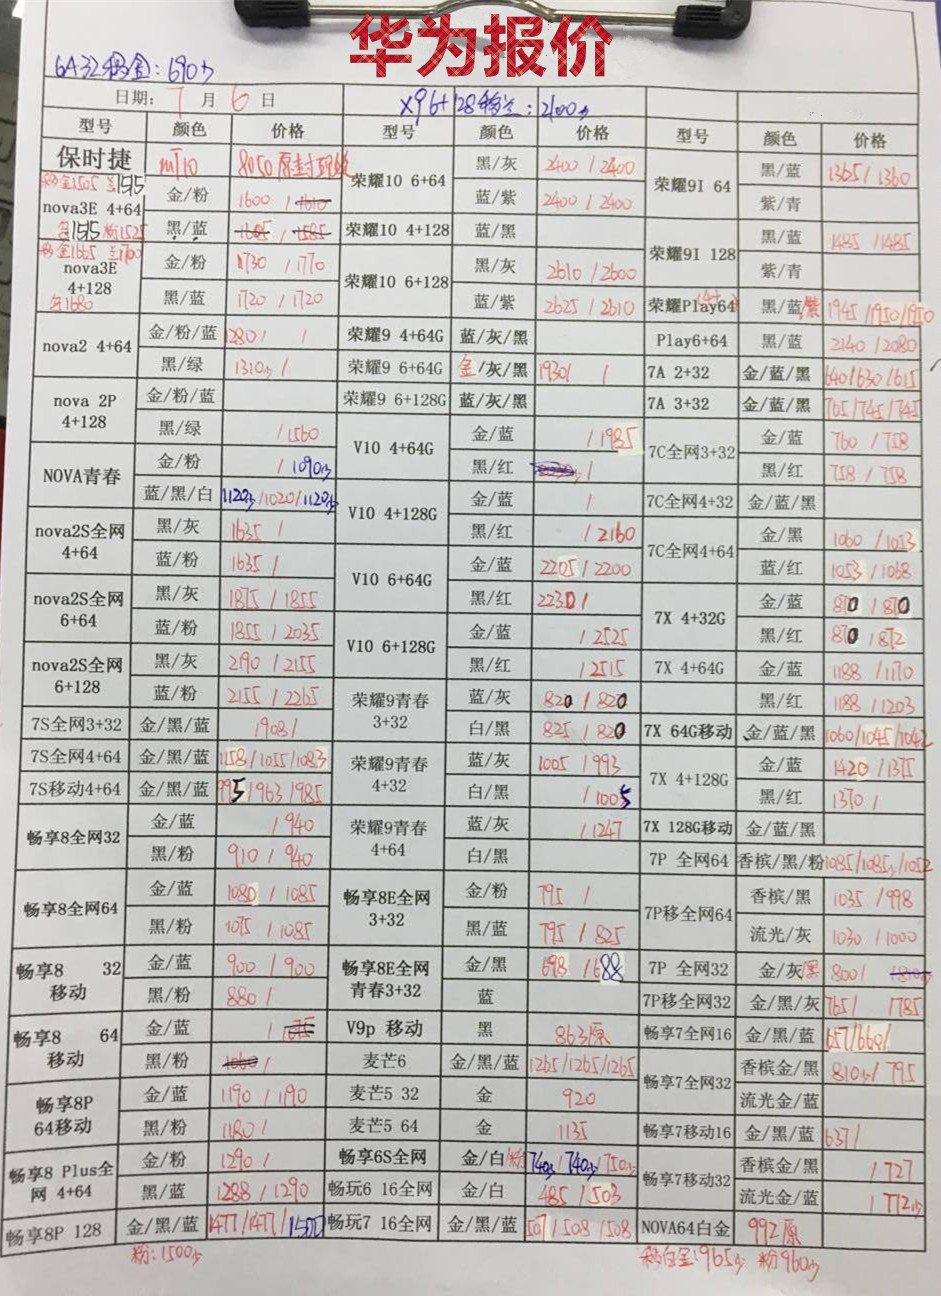 华为报价
6A32移金:690少
日期: 7 月 6 日 X9 6+128移兰:2100少
型号 颜色 价格 型号 颜色 价格 型号 颜色 价格
保时捷 mT10 8050原封
荣耀10 6+64 黑/灰 2400 / 2400
蓝/紫 2400 / 2400
荣耀9I 64 黑/蓝 1365 / 1360
紫/青
移金1505 兰1515
nova3E 4+64 金/粉 1600 / 1610
黑/蓝 1605 / 1585
荣耀10 4+128 蓝/黑
荣耀9I 128 黑/蓝 1485 / 1485
紫/青
移金1665 兰1700
nova3E 4+128 金/粉 1730 / 1770
黑/蓝 1720 / 1720
荣耀10 6+128 黑/灰 2610 / 2600
蓝/紫 2625 / 2610
荣耀Play64 黑/蓝/紫 1945 / 1950 / 1950
nova2 4+64 金/粉/蓝 1280 / /
黑/绿 1310少 /
荣耀9 4+64G 蓝/灰/黑
Play6+64 黑/蓝 2140 / 2080
荣耀9 6+64G 金/灰/黑 1930 / /
7A 2+32 金/蓝/黑 640/630/615
nova 2P 4+128 金/粉/蓝
黑/绿 / 1560
荣耀9 6+128G 蓝/灰/黑
7A 3+32 金/蓝/黑 765/745/745
V10 4+64G 金/蓝 / 1985
黑/红 /
7C全网3+32 金/蓝 760 / 758
黑/红 758 / 758
NOVA青春 金/粉 / 1090少
蓝/黑/白 1120少/1020/1120少
V10 4+128G 金/蓝 /
黑/红 / 2160
7C全网4+32 金/蓝/黑
nova2S全网 4+64 黑/灰 1635 /
蓝/粉 1635 /
7C全网4+64 金/黑 1060 / 1053
蓝/红 1053 / 1068
V10 6+64G 金/蓝 2205 / 2200
黑/红 2230 /
nova2S全网 6+64 黑/灰 1875 / 1855
蓝/粉 1855 / 2035
7X 4+32G 金/蓝 870 / 870
黑/红 870 / 872
V10 6+128G 金/蓝 / 2525
黑/红 / 2515
nova2S全网 6+128 黑/灰 2190 / 2155
蓝/粉 2155 / 2265
7X 4+64G 金/蓝 1188 / 1170
黑/红 1188 / 1203
荣耀9青春 3+32 蓝/灰 820 / 820
白/黑 825 / 820
7S全网3+32 金/黑/蓝 / 908 /
7X 64G移动 金/蓝/黑 1060/1045/1042
7S全网4+64 金/黑/蓝 1158/1055/1083
荣耀9青春 4+32 蓝/灰 1005 / 993
白/黑 / 1005
7X 4+128G 金/蓝 1420 / 1375
黑/红 1370 /
7S移动4+64 金/黑/蓝 995/963/985
畅享8全网32 金/蓝 / 940
黑/粉 910 / 940
荣耀9青春 4+64 蓝/灰 / 1247
白/黑
7X 128G移动 金/蓝/黑
7P 全网64 香槟/黑/粉 1085/1085少/1052
畅享8全网64 金/蓝 1080 / 1085
黑/粉 1075 / 1085
畅享8E全网 3+32 金/粉 795 /
黑/蓝 795 / 825
7P移全网64 香槟/黑 1035 / 998
流光/灰 1030 / 1000
畅享8 32 移动 金/蓝 900 / 900
黑/粉 880 /
畅享8E全网 青春3+32 金/黑 698 / 688
蓝
7P 全网32 金/灰黑 800 / 810少
7P移全网32 金/黑/灰 765 / 785
畅享8 64 移动 金/蓝 /
黑/粉 1060 /
V9p 移动 黑 863原
畅享7全网16 金/黑/蓝 657/660/
麦芒6 金/黑/蓝 1265/1265/1265
畅享7全网32 香槟金/黑 810少 / 795
流光金/蓝
畅享8P 64移动 金/蓝 1190 / 1190
黑/粉 1180 /
麦芒5 32 金 920
麦芒5 64 金 1135
畅享7移动16 金/黑/蓝 637 /
畅享8 Plus全网 4+64 金/粉 1290 /
黑/蓝 1288 / 1290
畅享6S全网 金/白/粉 740少/740少/750少
畅享7移动32 香槟金/黑 / 727
流光金/蓝 / 772少
畅玩6 16全网 金/白 485 / 503
畅享8P 128 金/黑/蓝 1477/1477/1500
畅玩7 16全网 金/黑/蓝 507/508/508
NOVA64白金 992原
粉:1500少 移白金:965少 粉960少